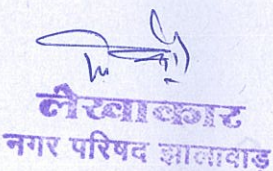 लेखाकार
नगर परिषद झालावाड़